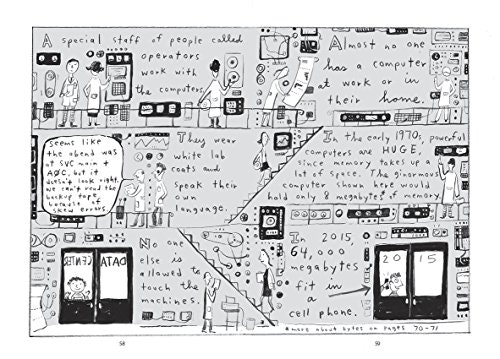 A special staff of people called
operators
work with
the computers.
Almost no one
has a computer
at work or in
their home.
Seems like
the abend was
at SVC main +
A@C, but it
doesn't look right.
We can't read the
backup tape
because of
skew errors.
They wear
white lab
coats and
speak their
own
language.
In the early 1970s, powerful
computers are HUGE,
since memory takes up a
lot of space. The ginormous
computer shown here would
hold only 8 megabytes* of memory.
No one
else is
allowed to
touch the
machines.
DATA
CENTER
In 2015,
64,000
megabytes
fit in
a
cell phone.
2015
*more about bytes on pages 70-71
58
59